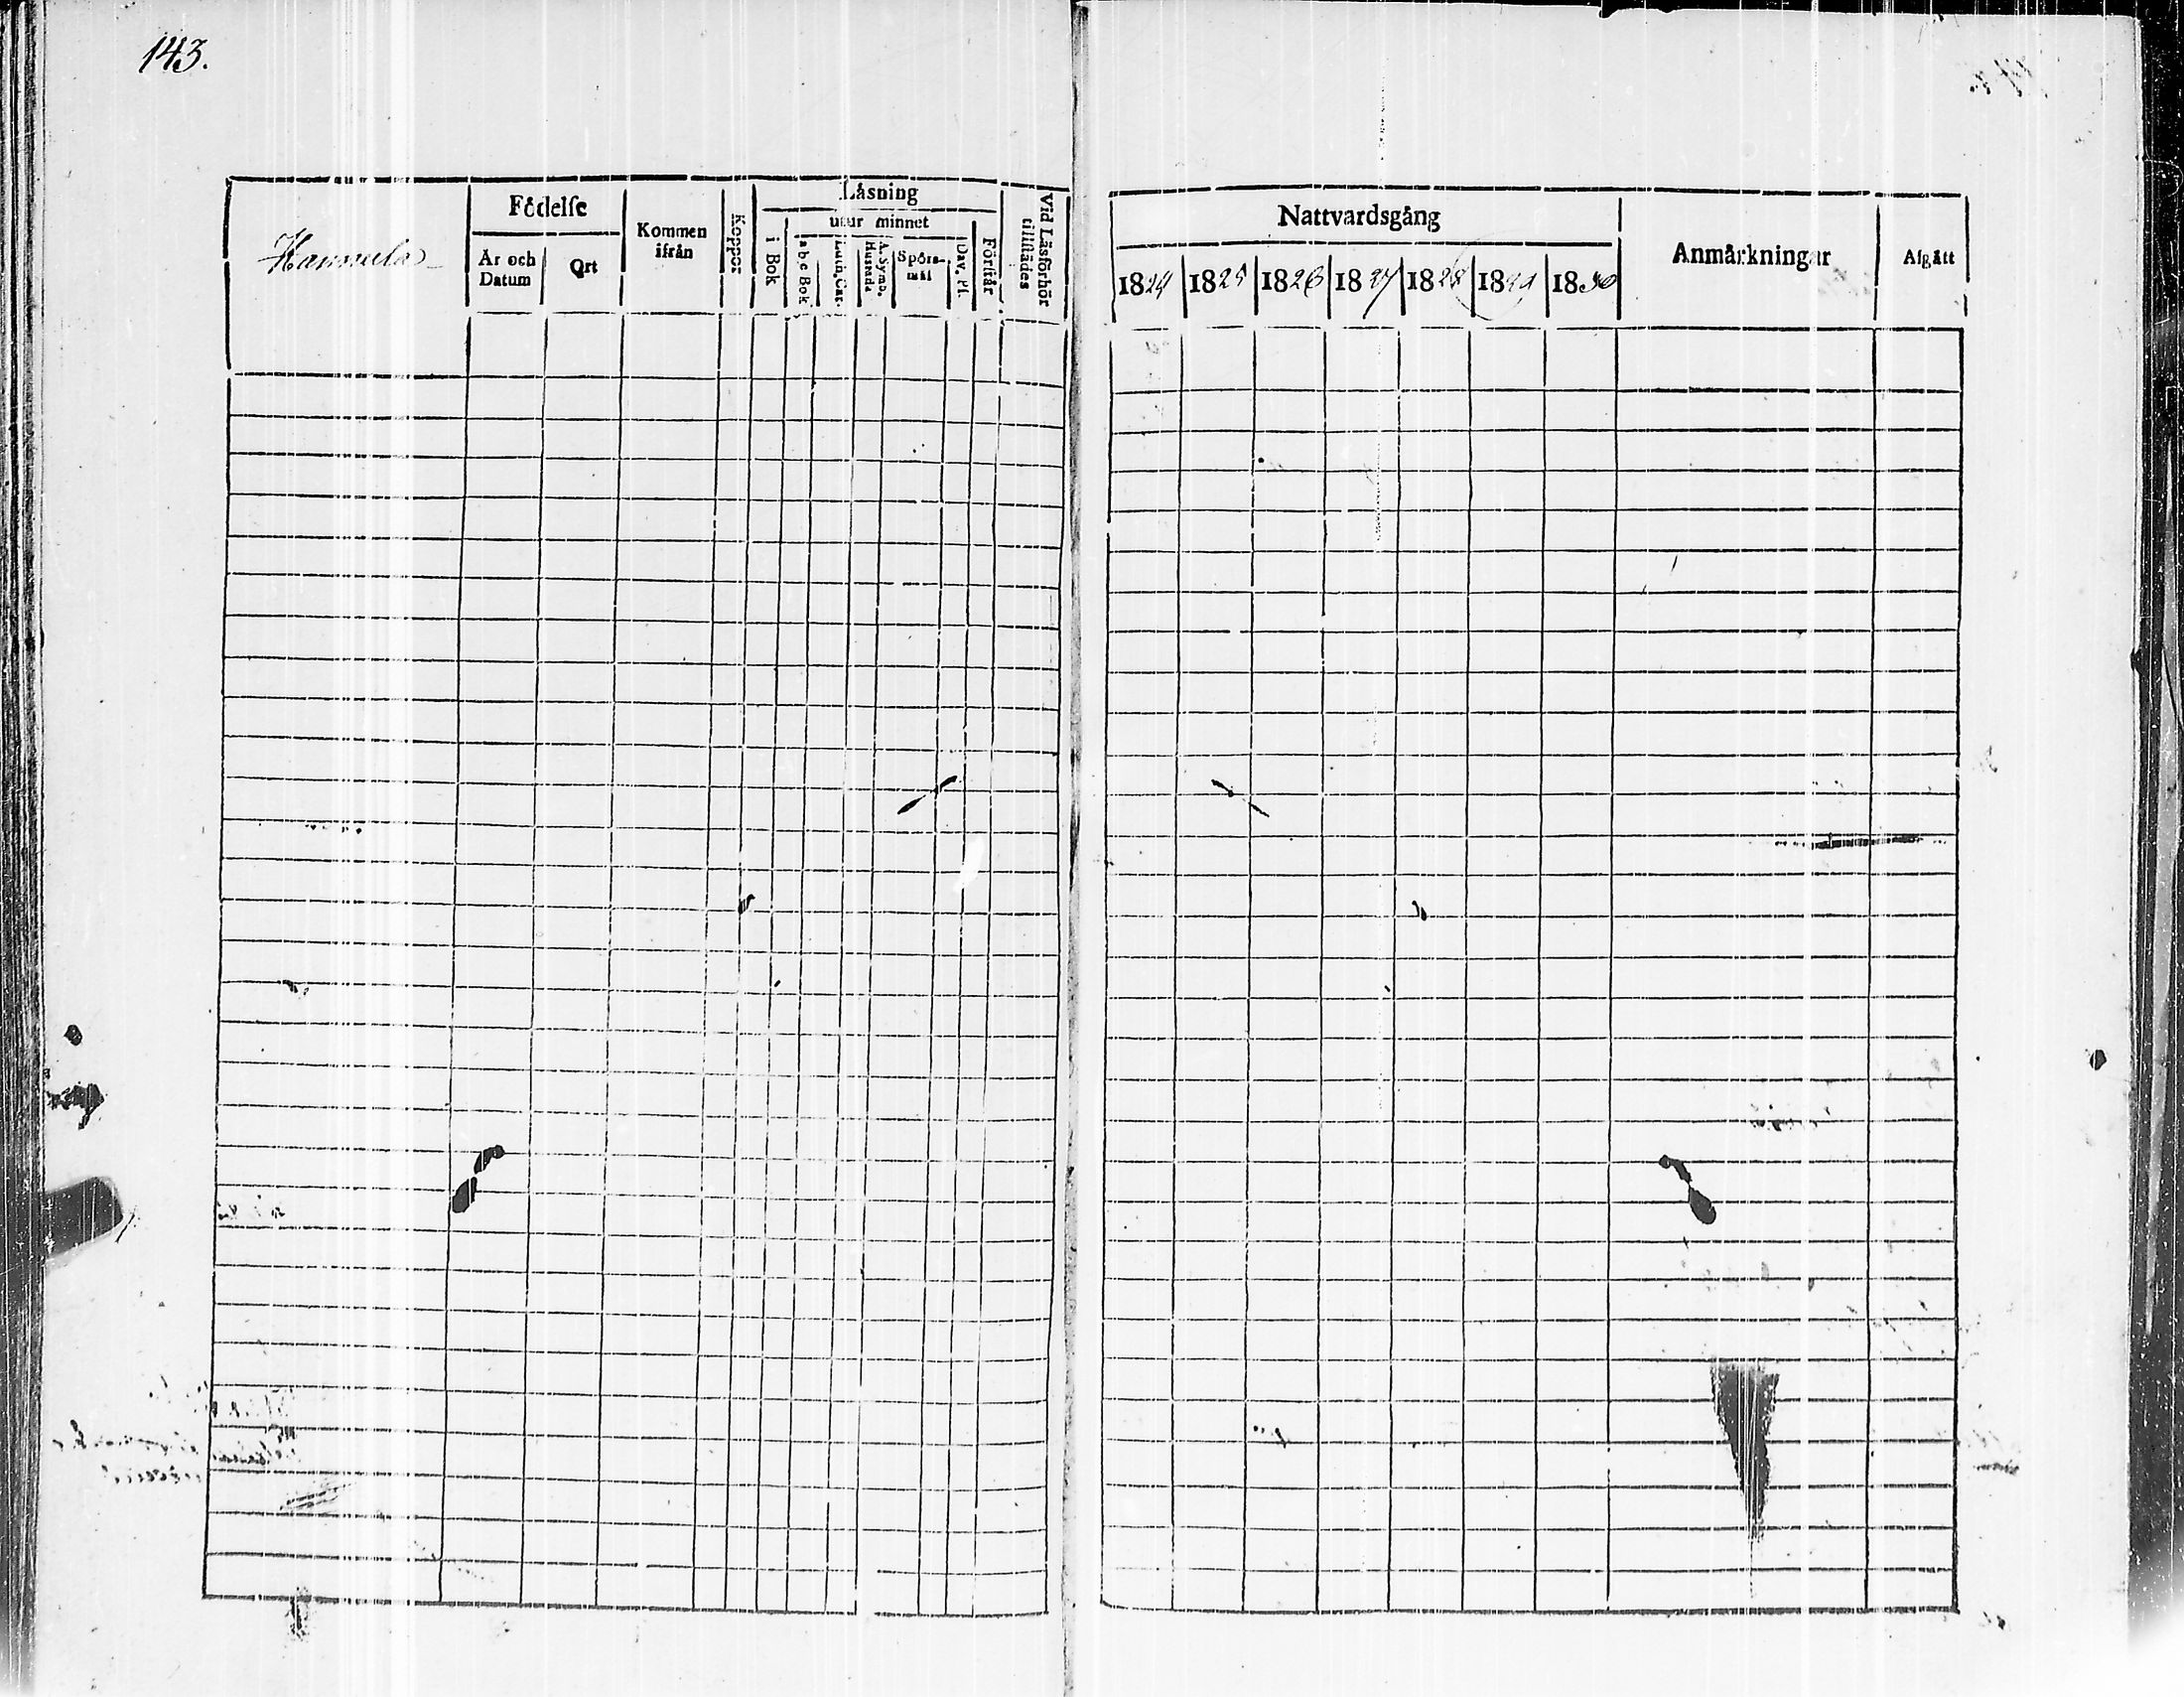 143.
Hannula
Födelse
År och Datum
Ort
Kommen ifrån
Koppor
Läsning
i Bok
utur minnet
a b c Bok
Luth. Cat.
A. Symb.
Hustafla
Spörs-
mål
Dav. Ps.
Förstår
Vid Läsförhör
tillstädes
Nattvardsgång
1824 1825 1826 1827 1828 1829 1830
Anmärkningar
Afgått